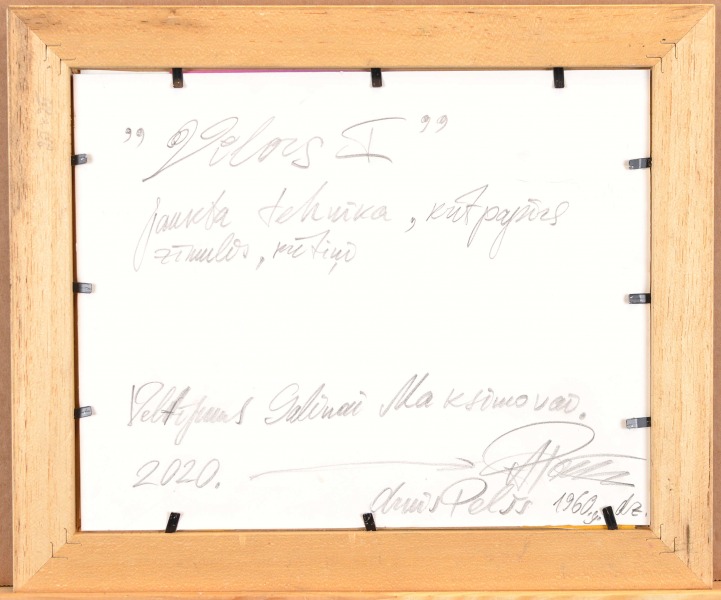 „Velors I”
jaukta tehnika, krītpapīrs
zīmulis, krītiņi
Veltījums Gaļinai Maksimovai.
2020.
Polis 1960.g. dz.